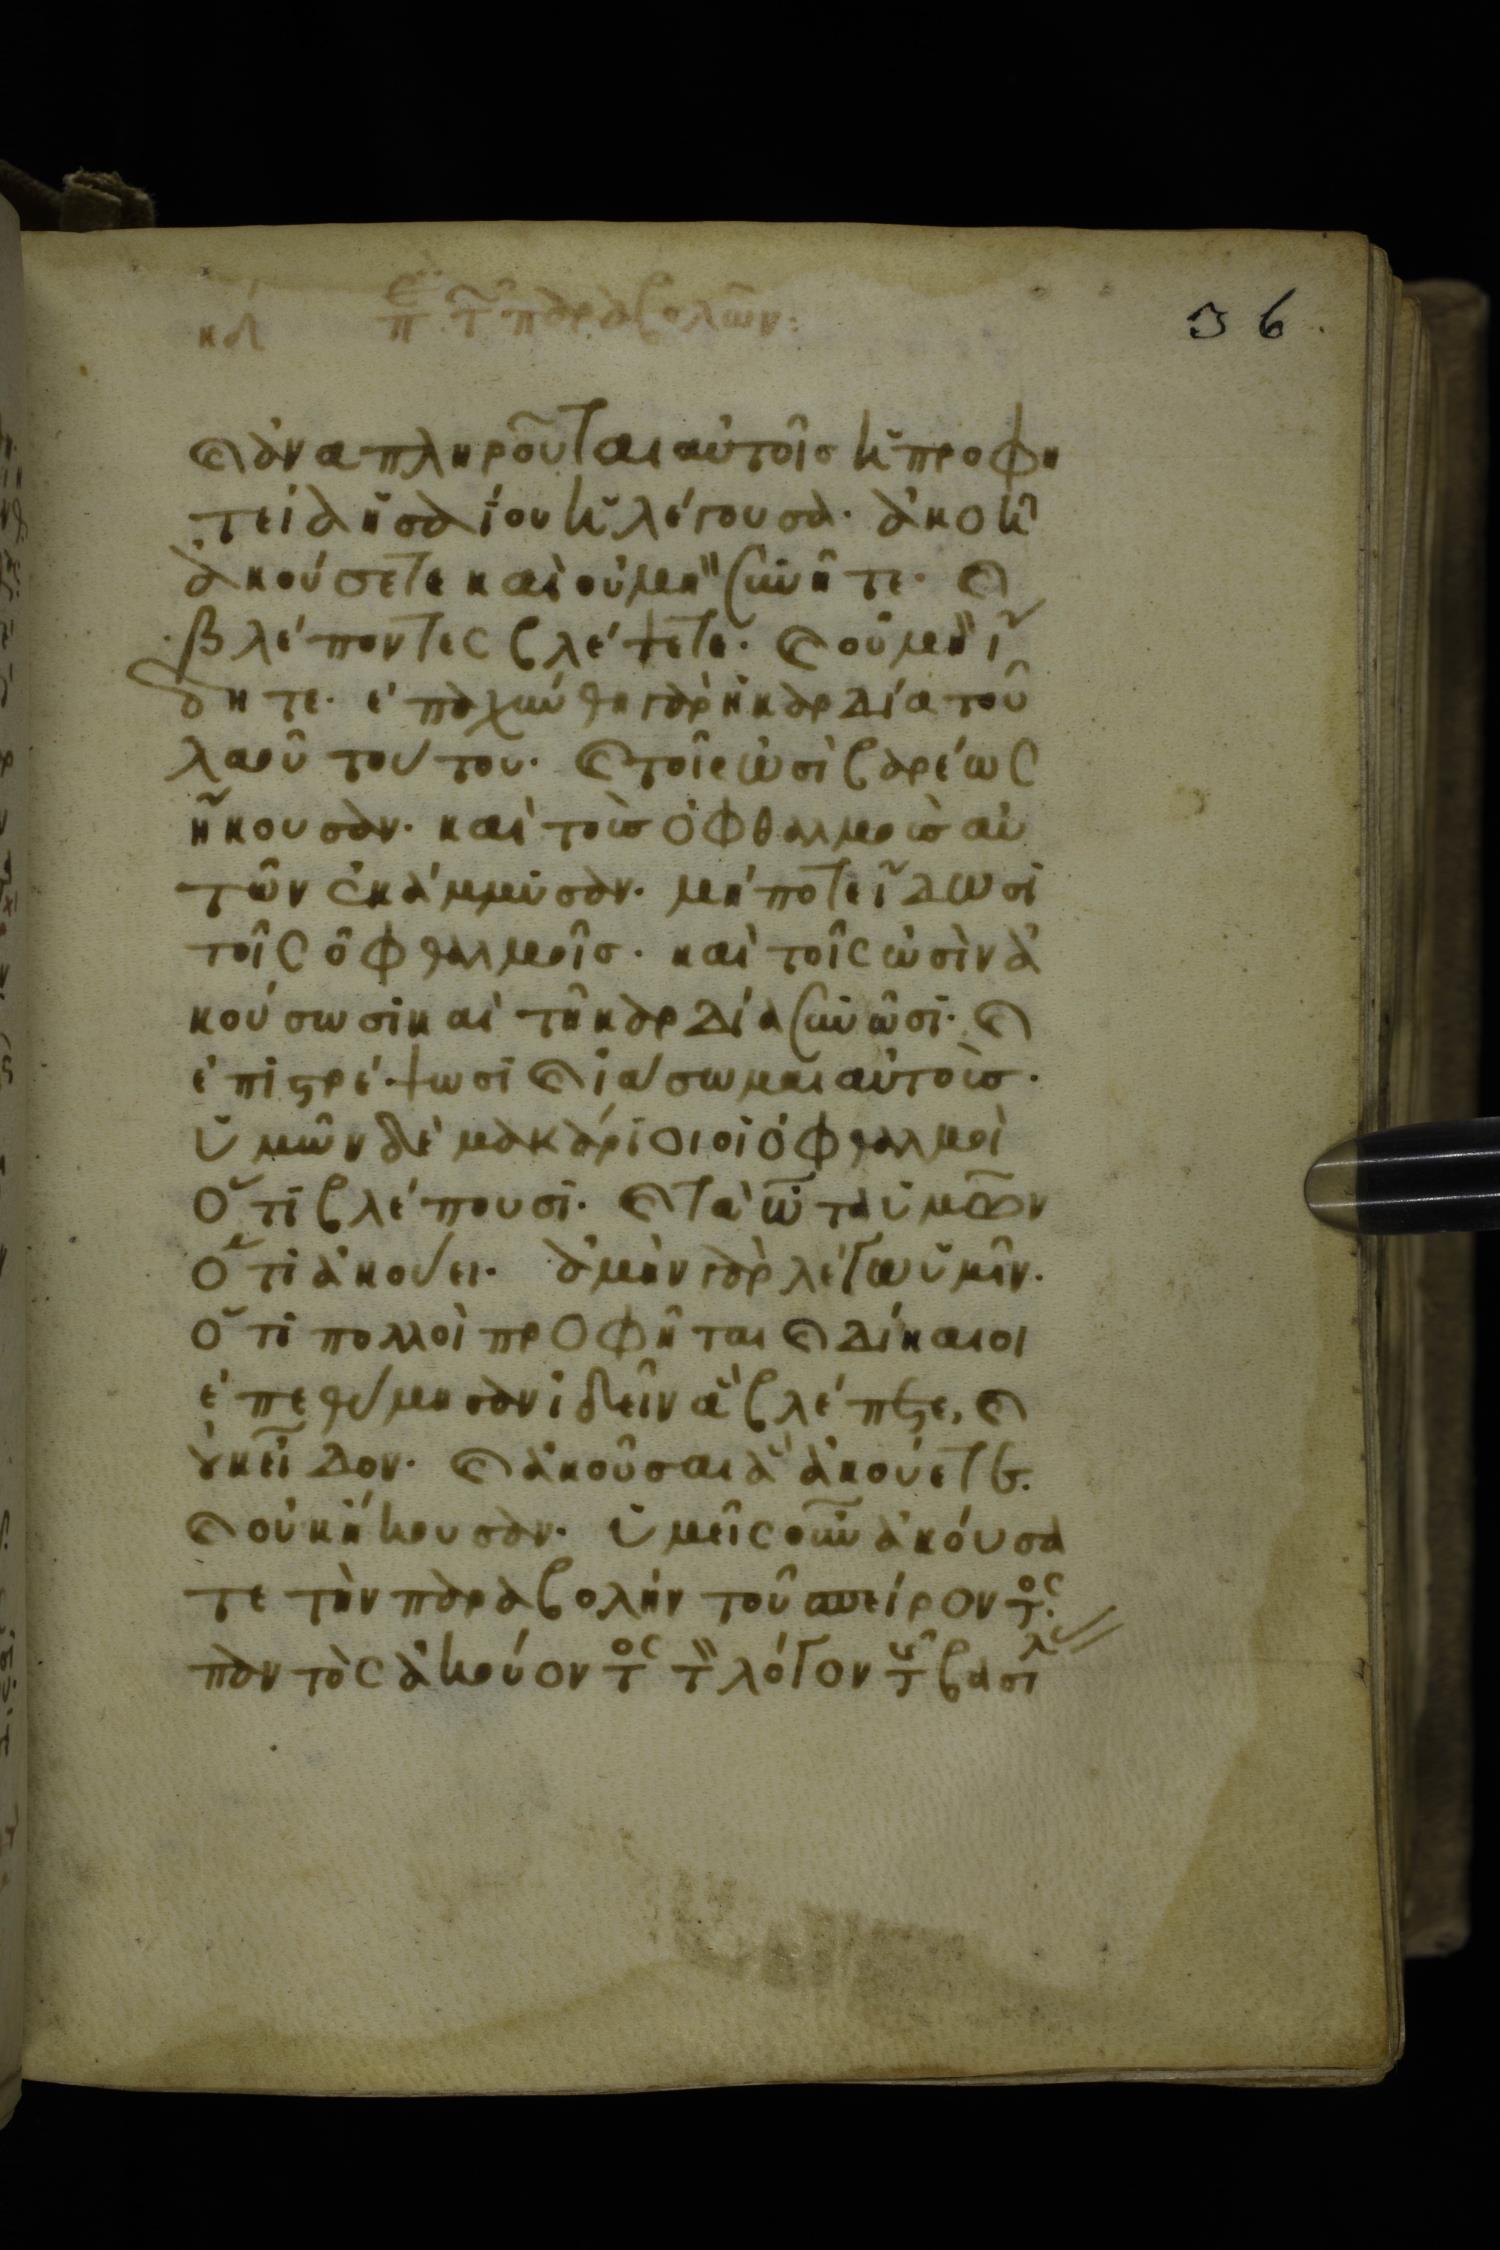 κδ περὶ τῶν παραβολῶν: 36
καὶ ἀναπληροῦται αὐτοῖς ἡ προφη
τεία ἡσαΐου ἡ λέγουσα. ἀκοῆ
ἀκούσετε καὶ οὐ μὴ συνῆτε. καὶ
βλέποντες βλέψετε. καὶ οὐ μὴ ἴ
δητε. ἐπαχύνθη γὰρ ἡ καρδία τοῦ
λαοῦ τούτου. καὶ τοῖς ὠσὶ βαρέως
ἤκουσαν. καὶ τοὺς ὀφθαλμοὺς αὐ
τῶν ἐκάμμυσαν. μήποτε ἴδωσι
τοῖς ὀφθαλμοῖς. καὶ τοῖς ὠσὶν ἀ
κούσωσι καὶ τῆ καρδία συνῶσι. καὶ
ἐπιστρέψωσι καὶ ἰάσωμαι αὐτοὺς.
ὑμῶν δὲ μακάριοι οἱ ὀφθαλμοὶ
ὅτι βλέπουσι. καὶ τὰ ὦτα ὑμῶν
ὅτι ἀκούει. ἀμὴν γὰρ λέγω ὑμῖν.
ὅτι πολλοὶ προφῆται καὶ δίκαιοι
ἐπεθύμησαν ἰδεῖν ἃ βλέπετε, καὶ
οὐκ εἶδον. καὶ ἀκοῦσαι ἃ ἀκούετε.
καὶ οὐκ ἤκουσαν. ὑμεῖς οὖν ἀκούσα
τε τὴν παραβολὴν τοῦ σπείροντος.
παντὸς ἀκούοντος τὸν λόγον τῆς βασιλ